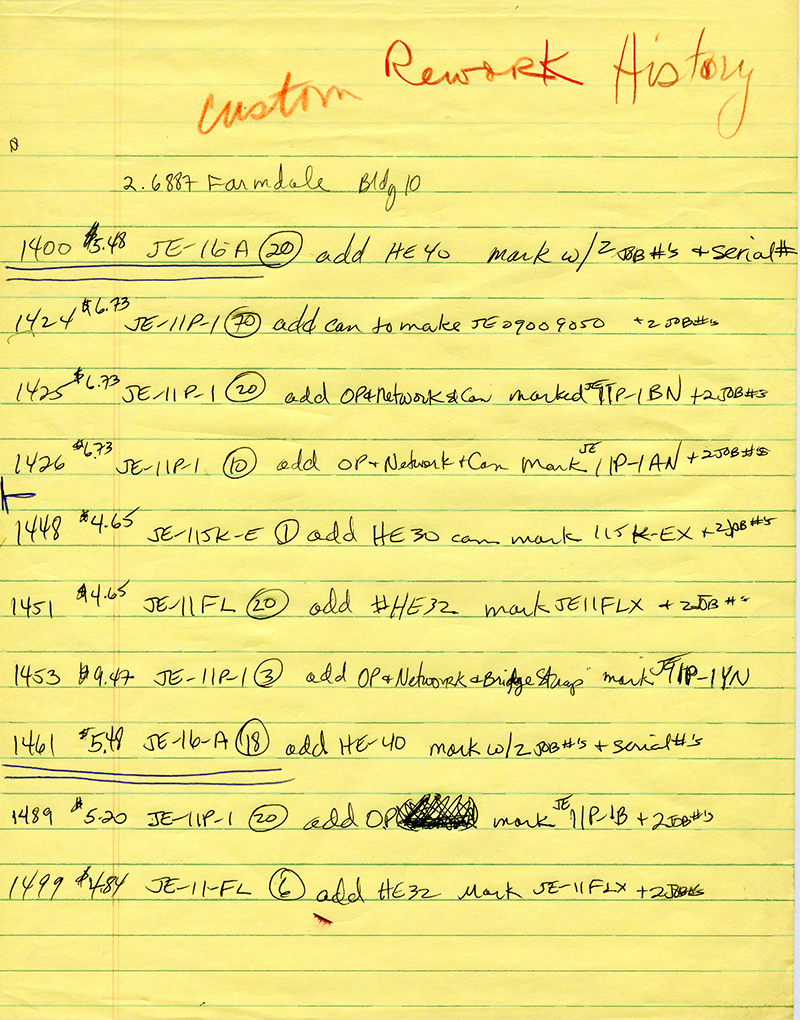 Custom Rework History
2.6887 Farmdale Bldg 10
1400 $5.48 JE-16-A (20) add HE40 mark w/2 JOB#'s + serial#
1424 $6.73 JE-11P-1 (70) add can to make JE09009050 +2 JOB#'s
1425 $6.73 JE-11P-1 (20) add OP+Network+Can marked JE11P-1BN +2 JOB#s
1426 $6.73 JE-11P-1 (10) add OP+Network+Can mark JE11P-1AN +2 JOB#s
1448 $4.65 JE-115K-E (1) add HE30 can mark 115K-EX +2 JOB#'s
1451 $4.65 JE-11FL (20) add #HE32 mark JE11FLX +2 JOB #'s
1453 $9.47 JE-11P-1 (3) add OP+Network+Bridge Strap" mark JE11P-1YN
1461 $5.48 JE-16-A (18) add HE-40 mark w/2 JOB#'s + serial#'s
1489 $5.20 JE-11P-1 (20) add OP mark JE11P-1B +2 JOB#'s
1499 $4.84 JE-11-FL (6) add HE32 Mark JE-11FLX +2 JOB#s